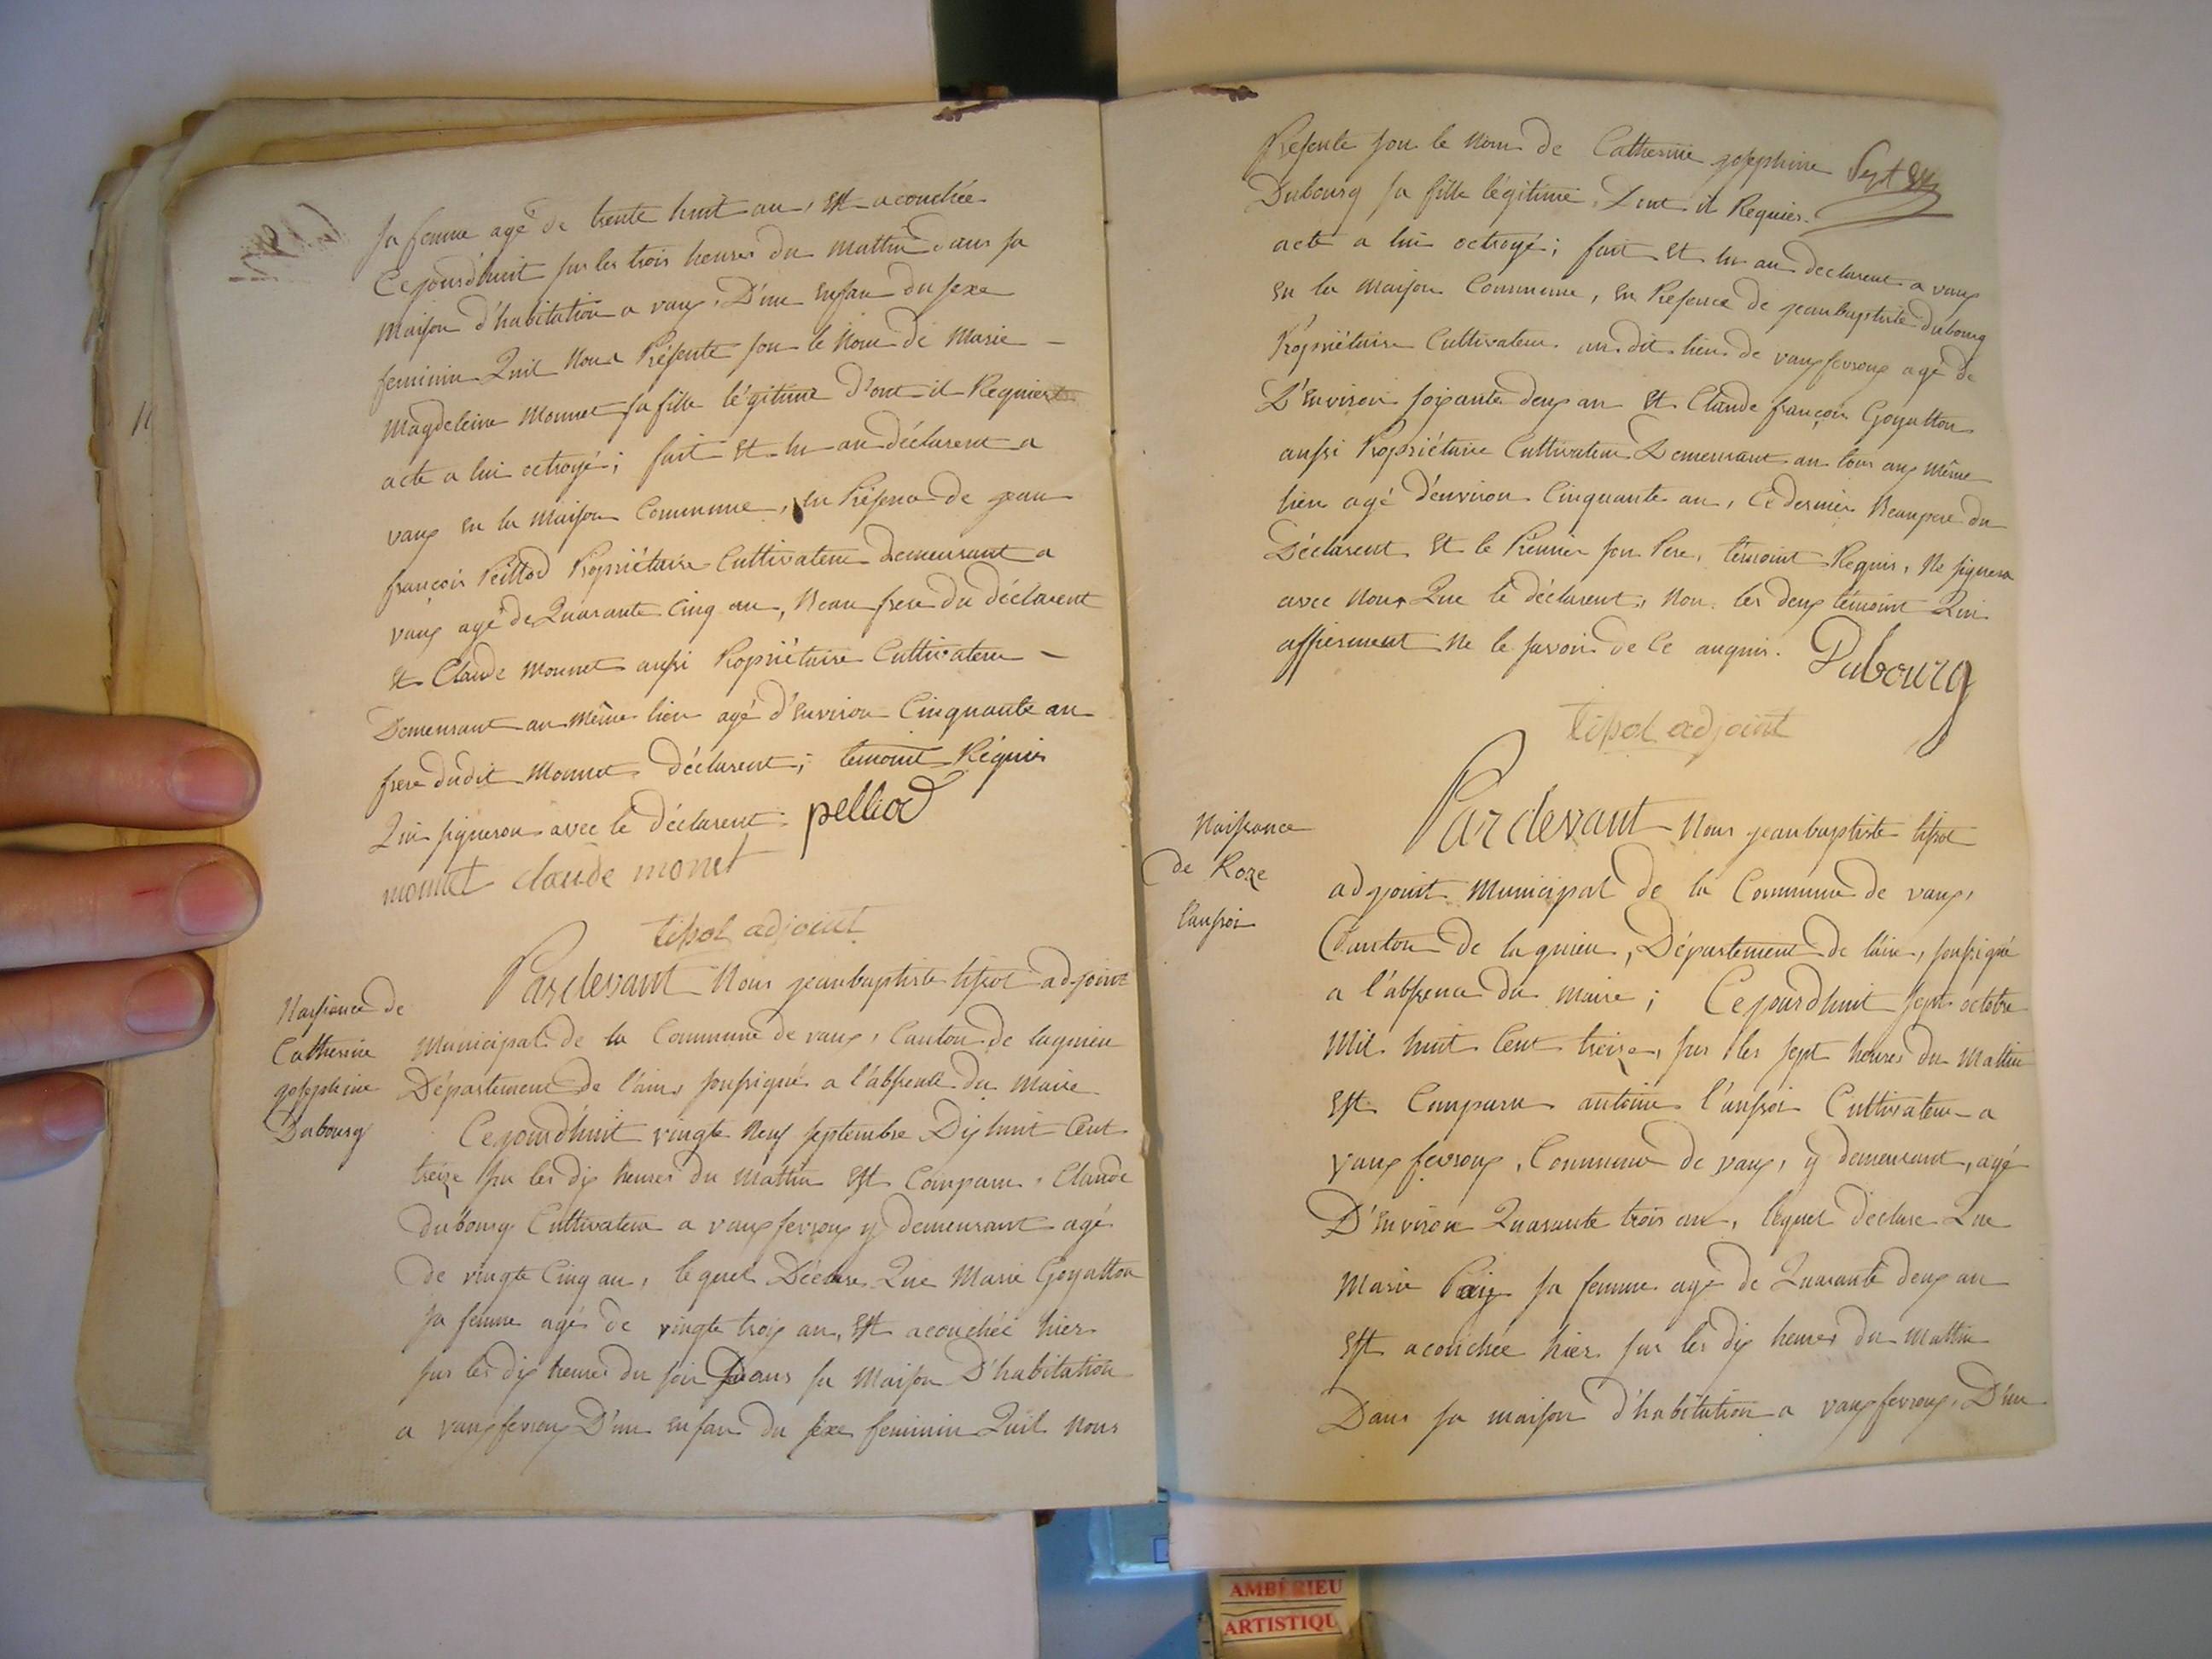 sa femme agé de trente huit an, Est acouchée
Cejourdhuit sur les trois heures du mattin dans sa
maison d'habitation a vaux, D'une enfan du sexe
feminin Quil Nous Présente sou le Nom de Marie
Magdeleine Monnet sa fille légitime d'ont il Requier
acte a lui octroyé; fait Et lu au déclarent a
vaux en la Maison Commune, en Présence de jean
françois Peillod Propriétaire Cultivateur demeurant a
vaux agé de Quarante Cinq an, Beau frere du déclarent
Et Claude Monnet aussi Propriétaire Cultivateur
Demeurant au même lieu agé d'Environ Cinquante an
frere dudit Monnet déclarent; temoint Réquis
Qui signeron avec le déclarent. pelliod
monnet claude monet
tissot adjoint
Naissance de
Catherine
josephine
Dubourg
Pardevant Nous jeanbaptiste tissot adjoint
Municipal de la Commune de vaux, Canton de lagnieu
Département de l'ain, soussigné a l'abssence du Maire
Cejourdhuit vingte Neuf septembre Dix huit Cent
treize sur les dix heures du Mattin Est Comparu, Claude
dubourg Cultivateur a vauxfevroux y demeurant agé
de vingte Cinq an, lequel Déclare Que Marie Goyatton
sa femme agés de vingte trois an, Est acouchéé hier
sur les dix heures du soir Dans sa Maison D'habitation
a vauxfevroux D'un enfan du sexe feminin Quil Nous
Présente sou le Nom de Catherine josephine
Dubourg sa fille légitime, Dont il Requier
acte a lui octroyé; fait Et lu au declarent a vaux
en la Maison Commune, en Présence de jeanbaptiste dubourg
Propriétaire Cultivateur audit lieu de vauxfevroux agé de
D'Environ soixante deux an Et Claude françois Goyatton
aussi Propriétaire Cultivateur Demeurant au tous aux même
lieu agé d'environ Cinquante an, Ce dernier Beaupere du
Déclarent Et le Premier son Pere, témoint Requis, Ne signera
avec Nous Que le déclarent, Non les deux témoint Qui
affirment Ne le savoir de Ce anquis. Dubourg
tissot adjoint
Naissance
de Roze
l'ansroi
Pardevant Nous jeanbaptiste tissot
adjoint Municipal de la Commune de vaux,
Canton de lagnieu, Département de l'ain, soussigné
a l'abssence du Maire; Cejourdhuit sept octobre
Mil huit Cent treize, sur les sept heures du Mattin
Est Comparu antoine l'ansroi Cultivateur a
vaux fevroux, Commune de vaux, y demeurant, agé
D'Environ Quarante trois an, lequel déclare Que
Marie sa femme agé de Quarante deux an
Est acouchée hier sur les dix heures du Mattin
Dans sa maison d'habitation a vauxfevroux, D'un
AMBÉRIEU
ARTISTIQU